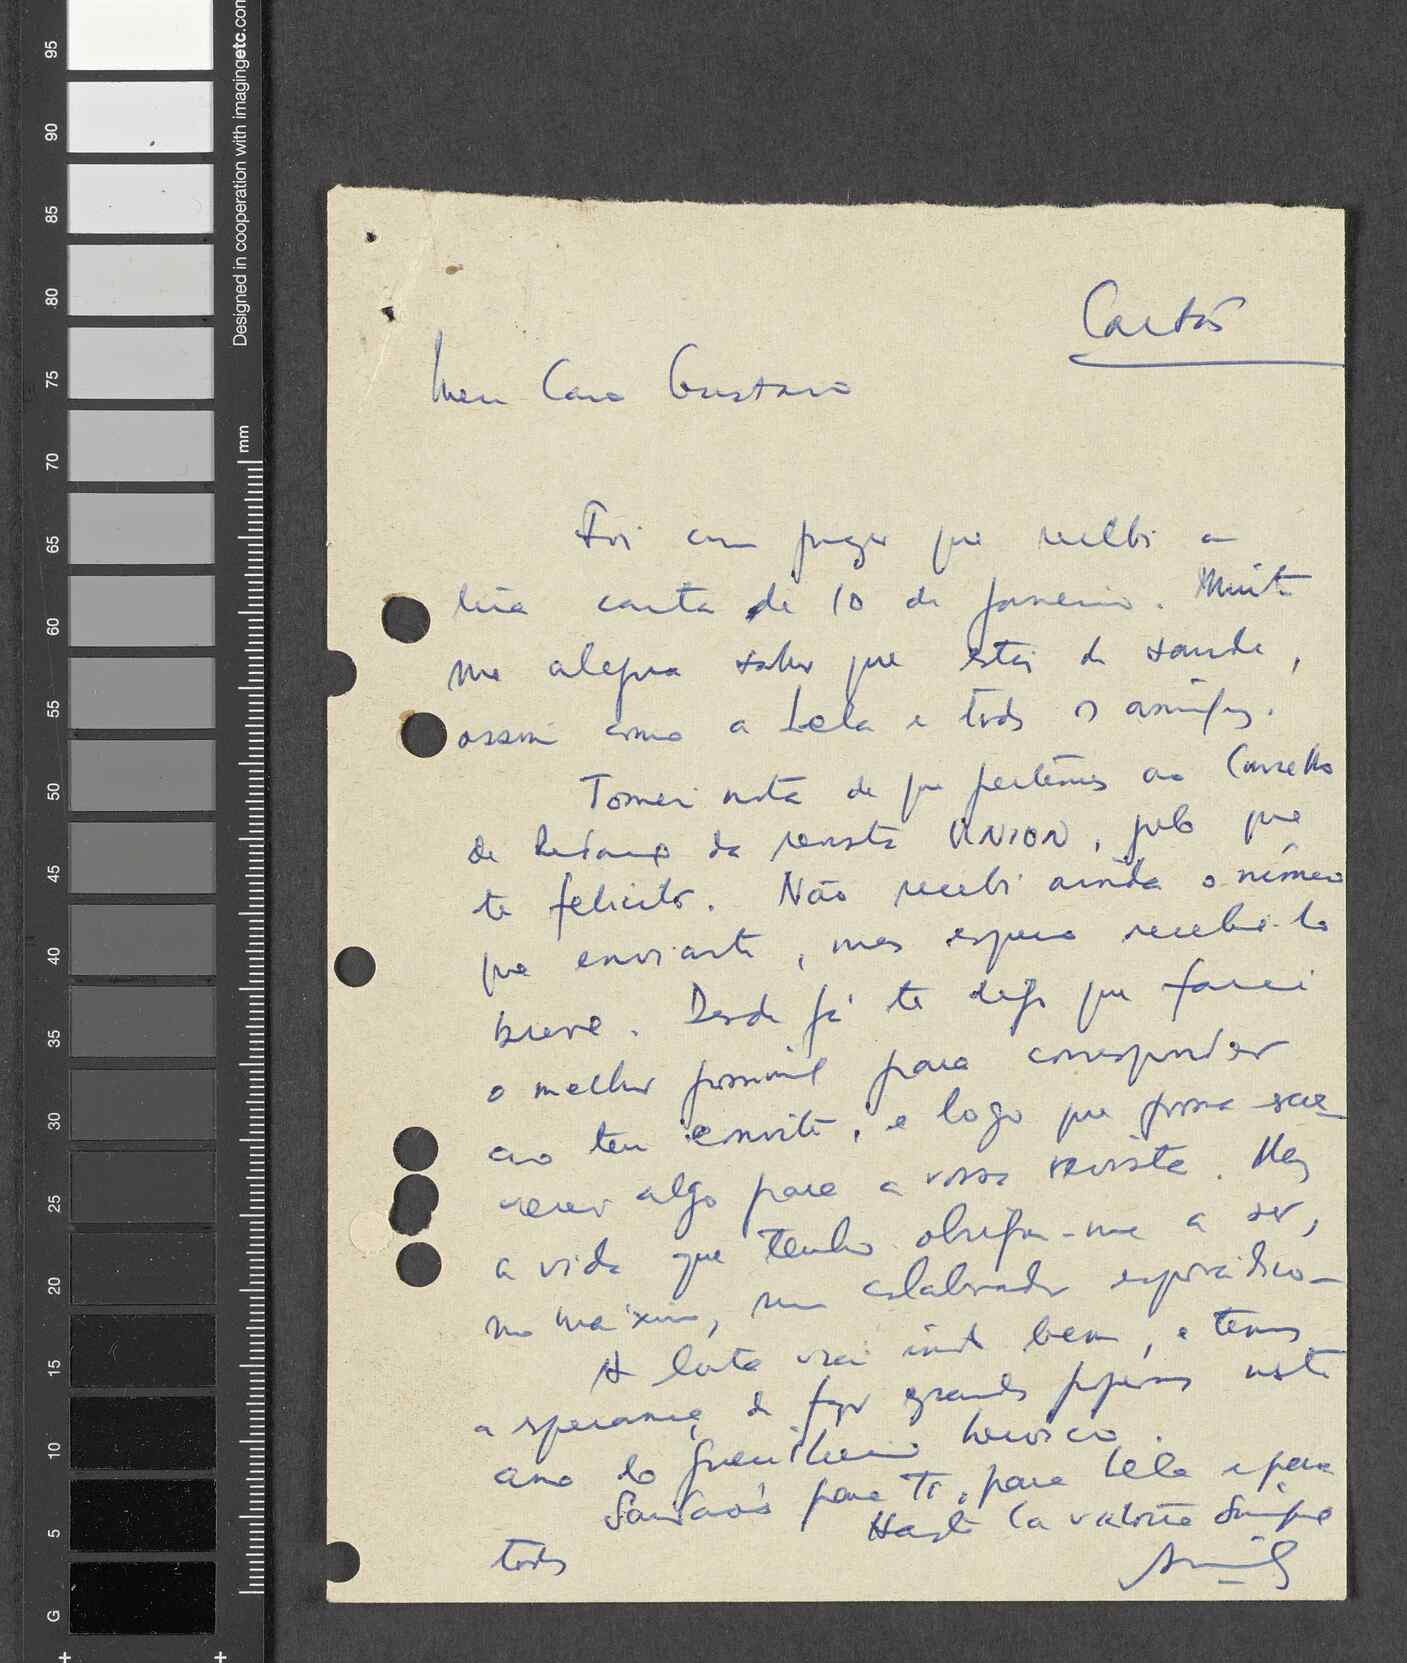 95
90
85
80
75
70
65
60
55
50
45
40
35
30
25
20
15
10
5
G
Designed in cooperation with imagingetc.com
mm
Cartão
Meu Caro Gustavo
Foi com prazer que recebi a
tua carta de 10 de Janeiro. Muito
me alegra saber que estás de saude,
assim como a Lela e todos os amigos.
Tomei nota de que pertences ao Conselho
de Redação da revista UNION, pelo que
te felicito. Não recebi ainda o número
que enviaste, mas espero recebe-lo
breve. Desde já te digo que farei
o melhor possivel para corresponder
ao teu convite, e logo que possa escre
verei algo para a vossa revista. Mas
a vida que tenho obriga-me a ser,
no máximo, um colaborador esporádico
A luta vai indo bem, e temos
a esperança de fazer grandes progressos neste
ano do guerrilheiro heroico.
Saudações para ti, para Lela e para
todos
Hasta la victoria Siempre